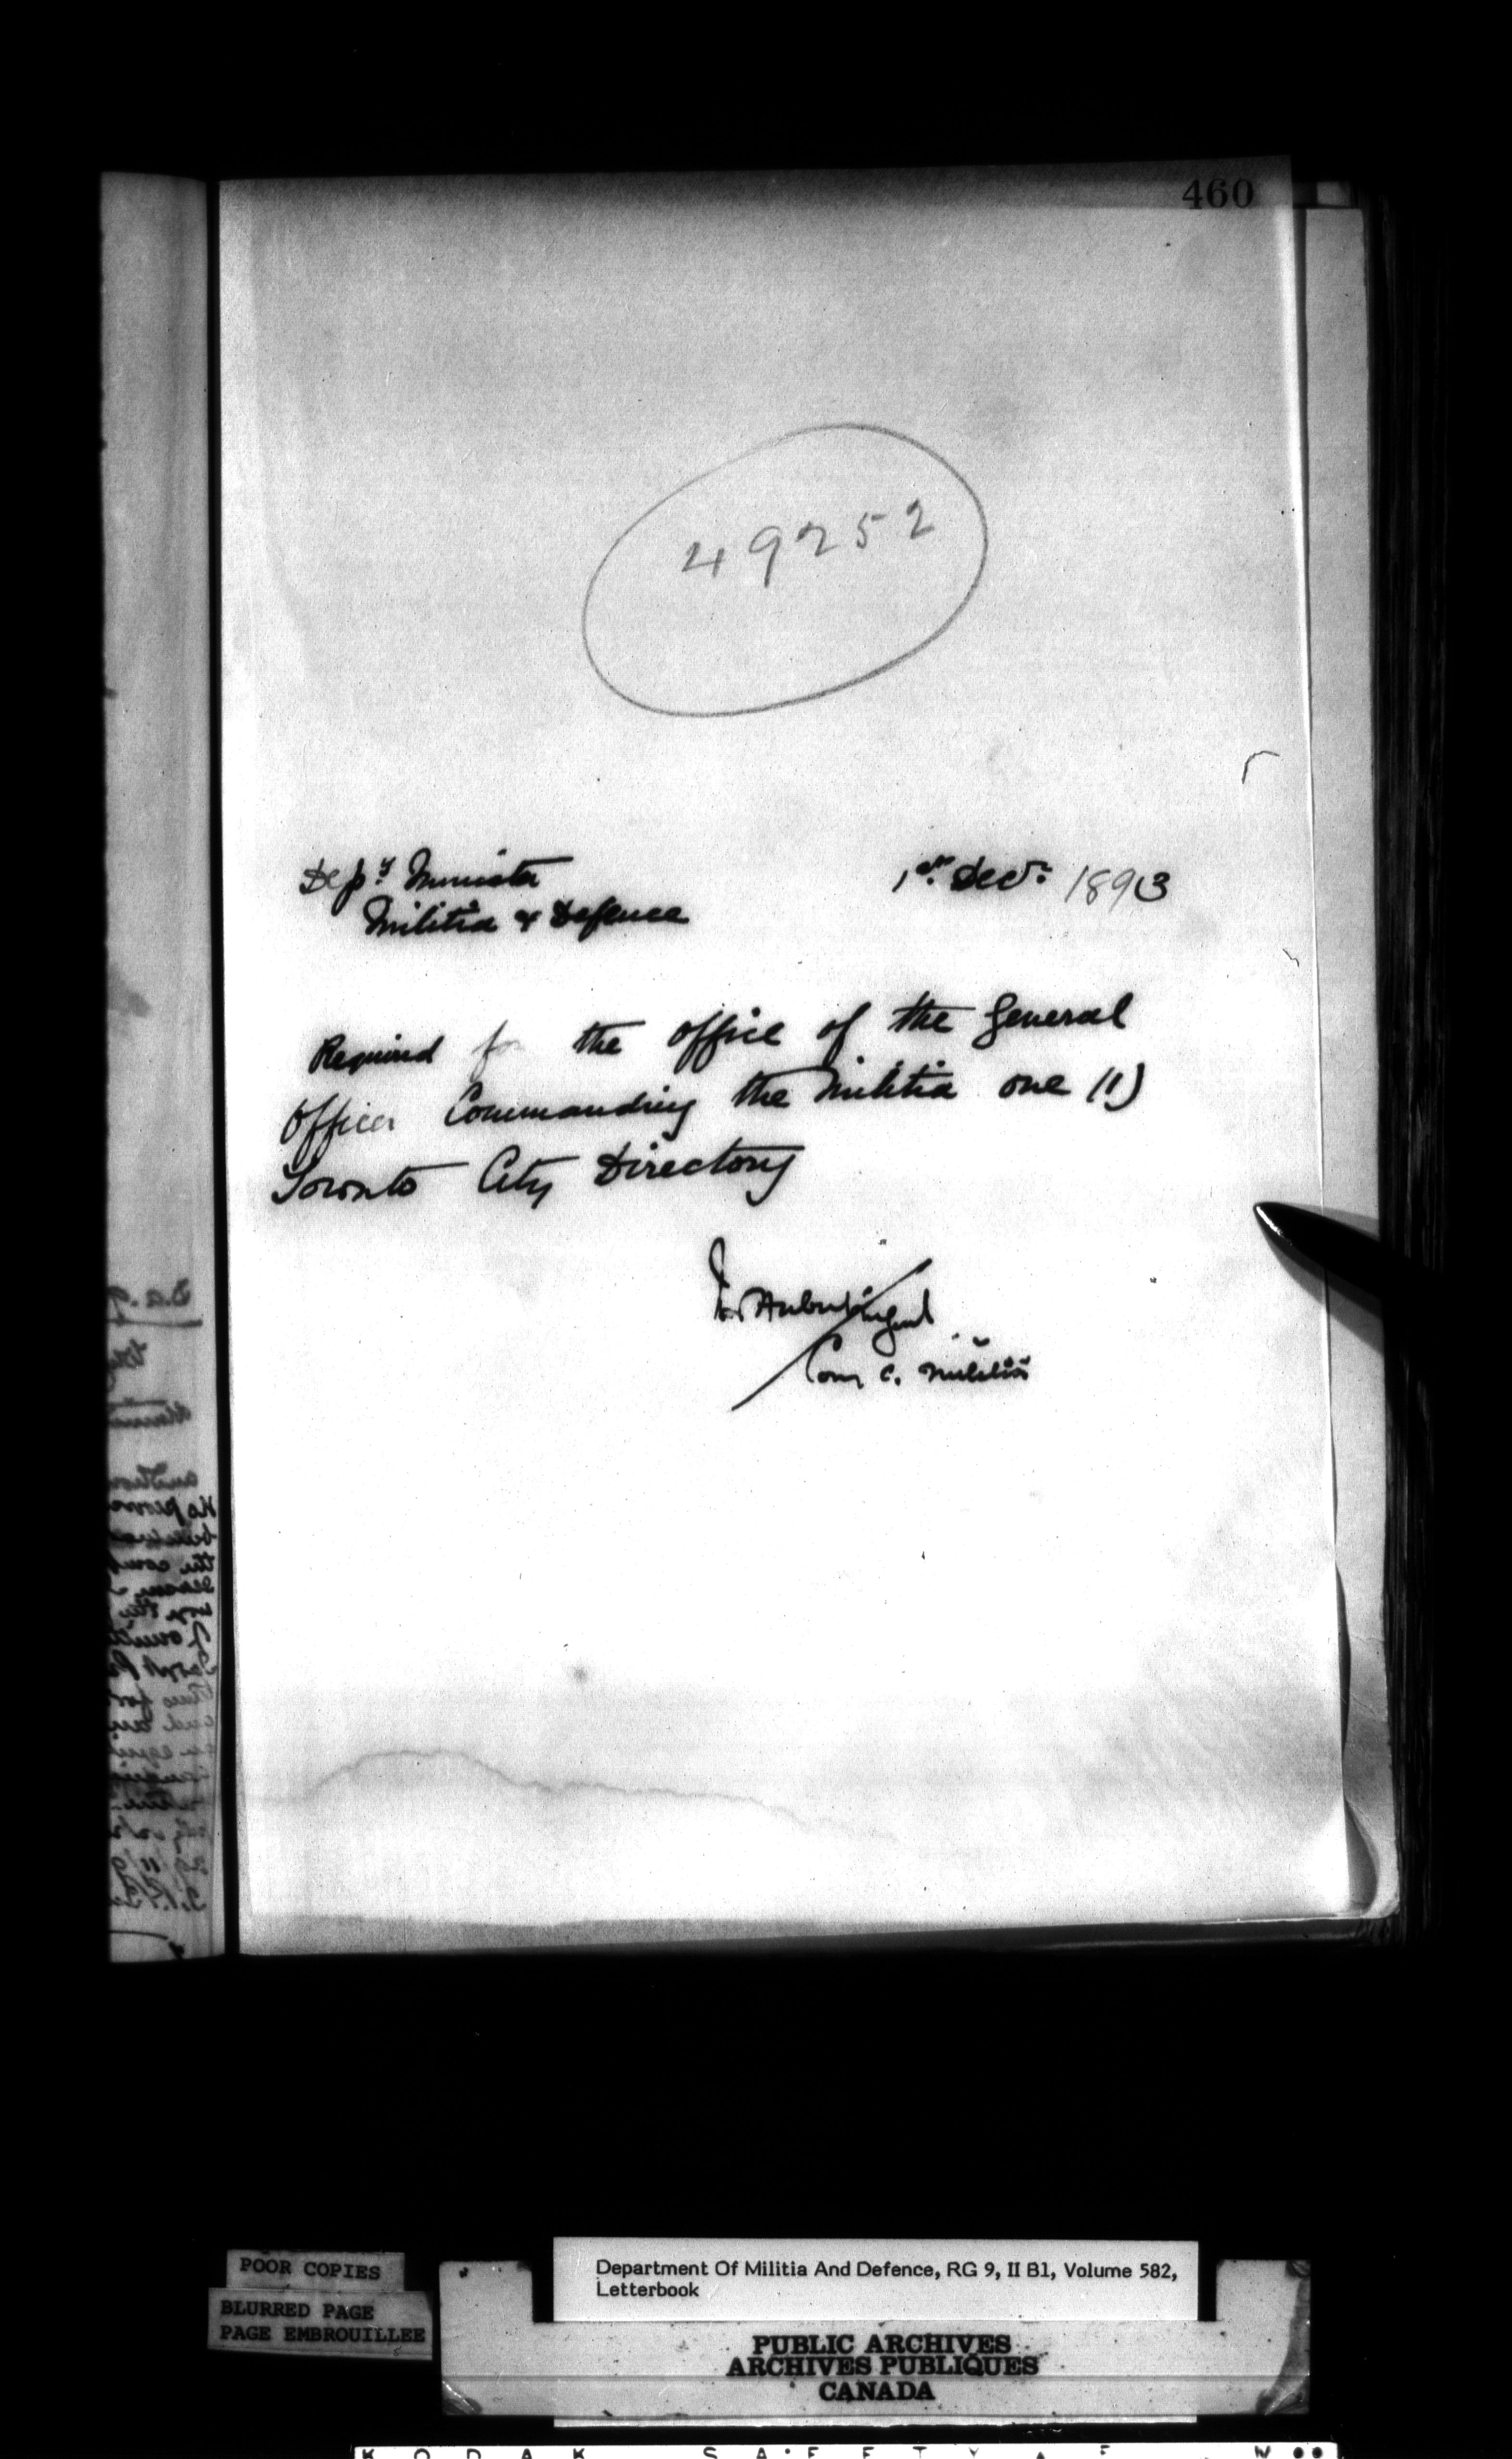 460
49252
Depy. Minister
Militia & Defence
1st. Decr. 1893
Required for the office of the General
Officer Commanding the Militia one (1)
Toronto City Directory
Com C. Militia
POOR COPIES
BLURRED PAGE
PAGE EMBROUILLEE
Department Of Militia And Defence, RG 9, II B1, Volume 582,
Letterbook
PUBLIC ARCHIVES
ARCHIVES PUBLIQUES
CANADA
KODAK SAFETY